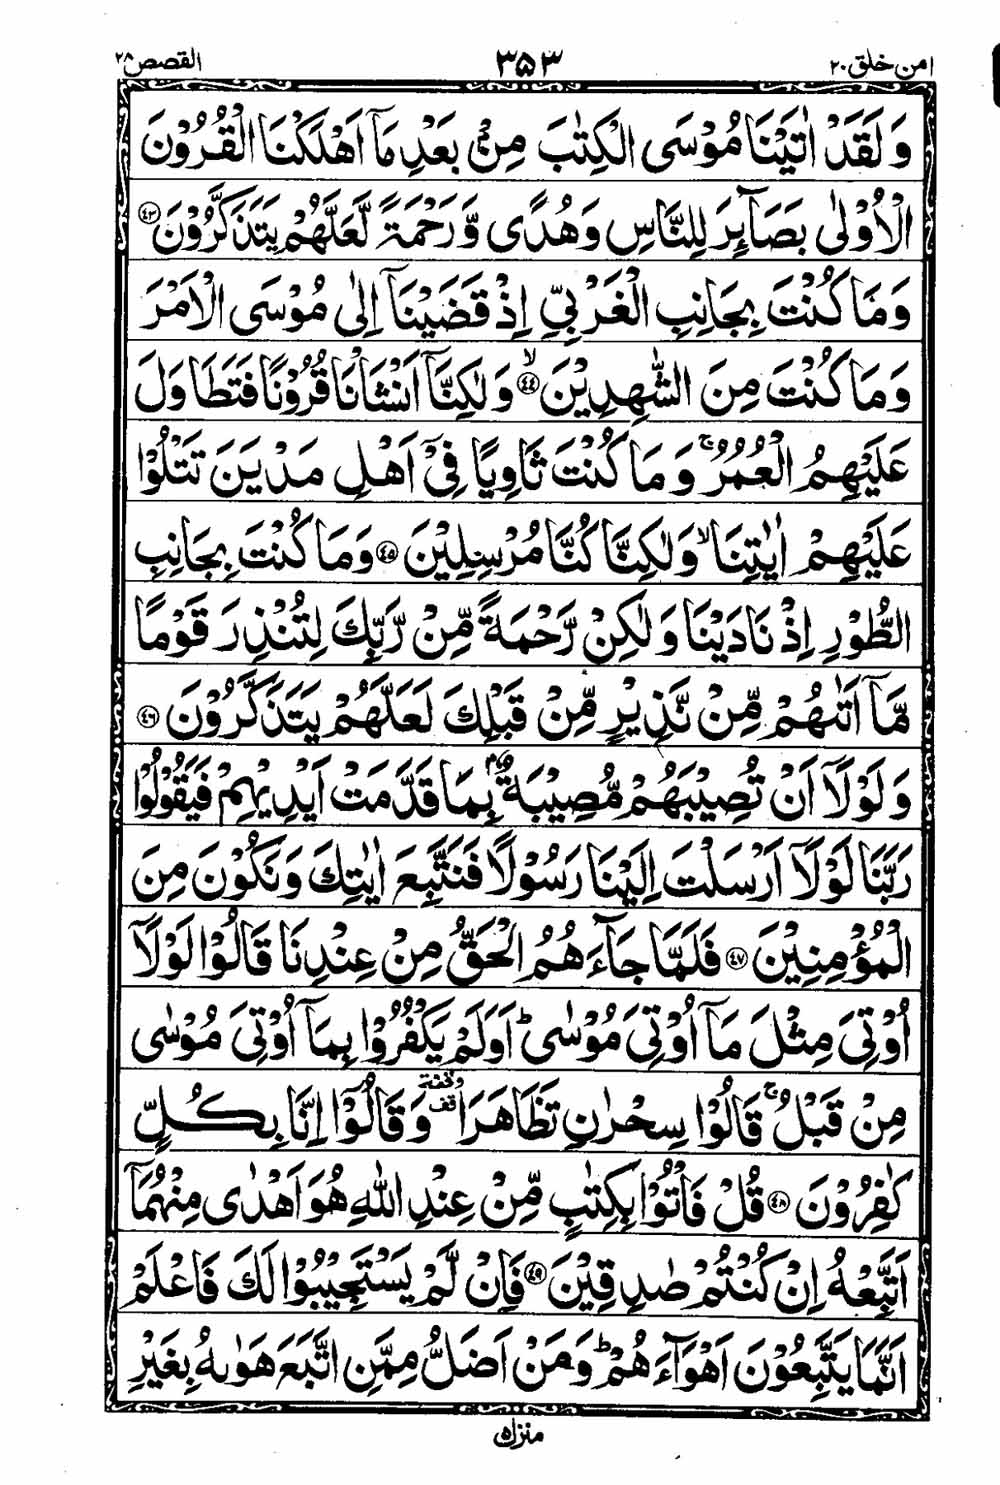 امن خلق ٢٠ ٣٥٣ القصص ٢٨
وَلَقَدْ اٰتَيْنَا مُوْسَى الْكِتٰبَ مِنْۢ بَعْدِ مَاۤ اَهْلَكْنَا الْقُرُوْنَ
الْاُوْلٰى بَصَآئِرَ لِلنَّاسِ وَهُدًى وَّرَحْمَةً لَّعَلَّهُمْ يَتَذَكَّرُوْنَ ٤٣
وَمَا كُنْتَ بِجَانِبِ الْغَرْبِيِّ اِذْ قَضَيْنَاۤ اِلٰى مُوْسَى الْاَمْرَ
وَمَا كُنْتَ مِنَ الشّٰهِدِيْنَ ٤٤ ۙ وَلٰكِنَّاۤ اَنْشَاْنَا قُرُوْنًا فَتَطَاوَلَ
عَلَيْهِمُ الْعُمُرُ ۚ وَمَا كُنْتَ ثَاوِيًا فِيْۤ اَهْلِ مَدْيَنَ تَتْلُوْا
عَلَيْهِمْ اٰيٰتِنَا ۙ وَلٰكِنَّا كُنَّا مُرْسِلِيْنَ ٤٥ وَمَا كُنْتَ بِجَانِبِ
الطُّوْرِ اِذْ نَادَيْنَا وَلٰكِنْ رَّحْمَةً مِّنْ رَّبِّكَ لِتُنْذِرَ قَوْمًا
مَّاۤ اَتٰىهُمْ مِّنْ نَّذِيْرٍ مِّنْ قَبْلِكَ لَعَلَّهُمْ يَتَذَكَّرُوْنَ ٤٦
وَلَوْلَاۤ اَنْ تُصِيْبَهُمْ مُّصِيْبَةٌۢ بِمَا قَدَّمَتْ اَيْدِيْهِمْ فَيَقُوْلُوْا
رَبَّنَا لَوْلَاۤ اَرْسَلْتَ اِلَيْنَا رَسُوْلًا فَنَتَّبِعَ اٰيٰتِكَ وَنَكُوْنَ مِنَ
الْمُؤْمِنِيْنَ ٤٧ فَلَمَّا جَآءَهُمُ الْحَقُّ مِنْ عِنْدِنَا قَالُوْا لَوْلَاۤ
اُوْتِيَ مِثْلَ مَاۤ اُوْتِيَ مُوْسٰى ؕ اَوَلَمْ يَكْفُرُوْا بِمَاۤ اُوْتِيَ مُوْسٰى
مِنْ قَبْلُ ۚ قَالُوْا سِحْرٰنِ تَظَاهَرَا وقفة قف وَقَالُوْۤا اِنَّا بِكُلٍّ
كٰفِرُوْنَ ٤٨ قُلْ فَاْتُوْا بِكِتٰبٍ مِّنْ عِنْدِ اللّٰهِ هُوَ اَهْدٰى مِنْهُمَاۤ
اَتَّبِعْهُ اِنْ كُنْتُمْ صٰدِقِيْنَ ٤٩ فَاِنْ لَّمْ يَسْتَجِيْبُوْا لَكَ فَاعْلَمْ
اَنَّمَا يَتَّبِعُوْنَ اَهْوَآءَهُمْ ؕ وَمَنْ اَضَلُّ مِمَّنِ اتَّبَعَ هَوٰىهُ بِغَيْرِ
منزل ٥